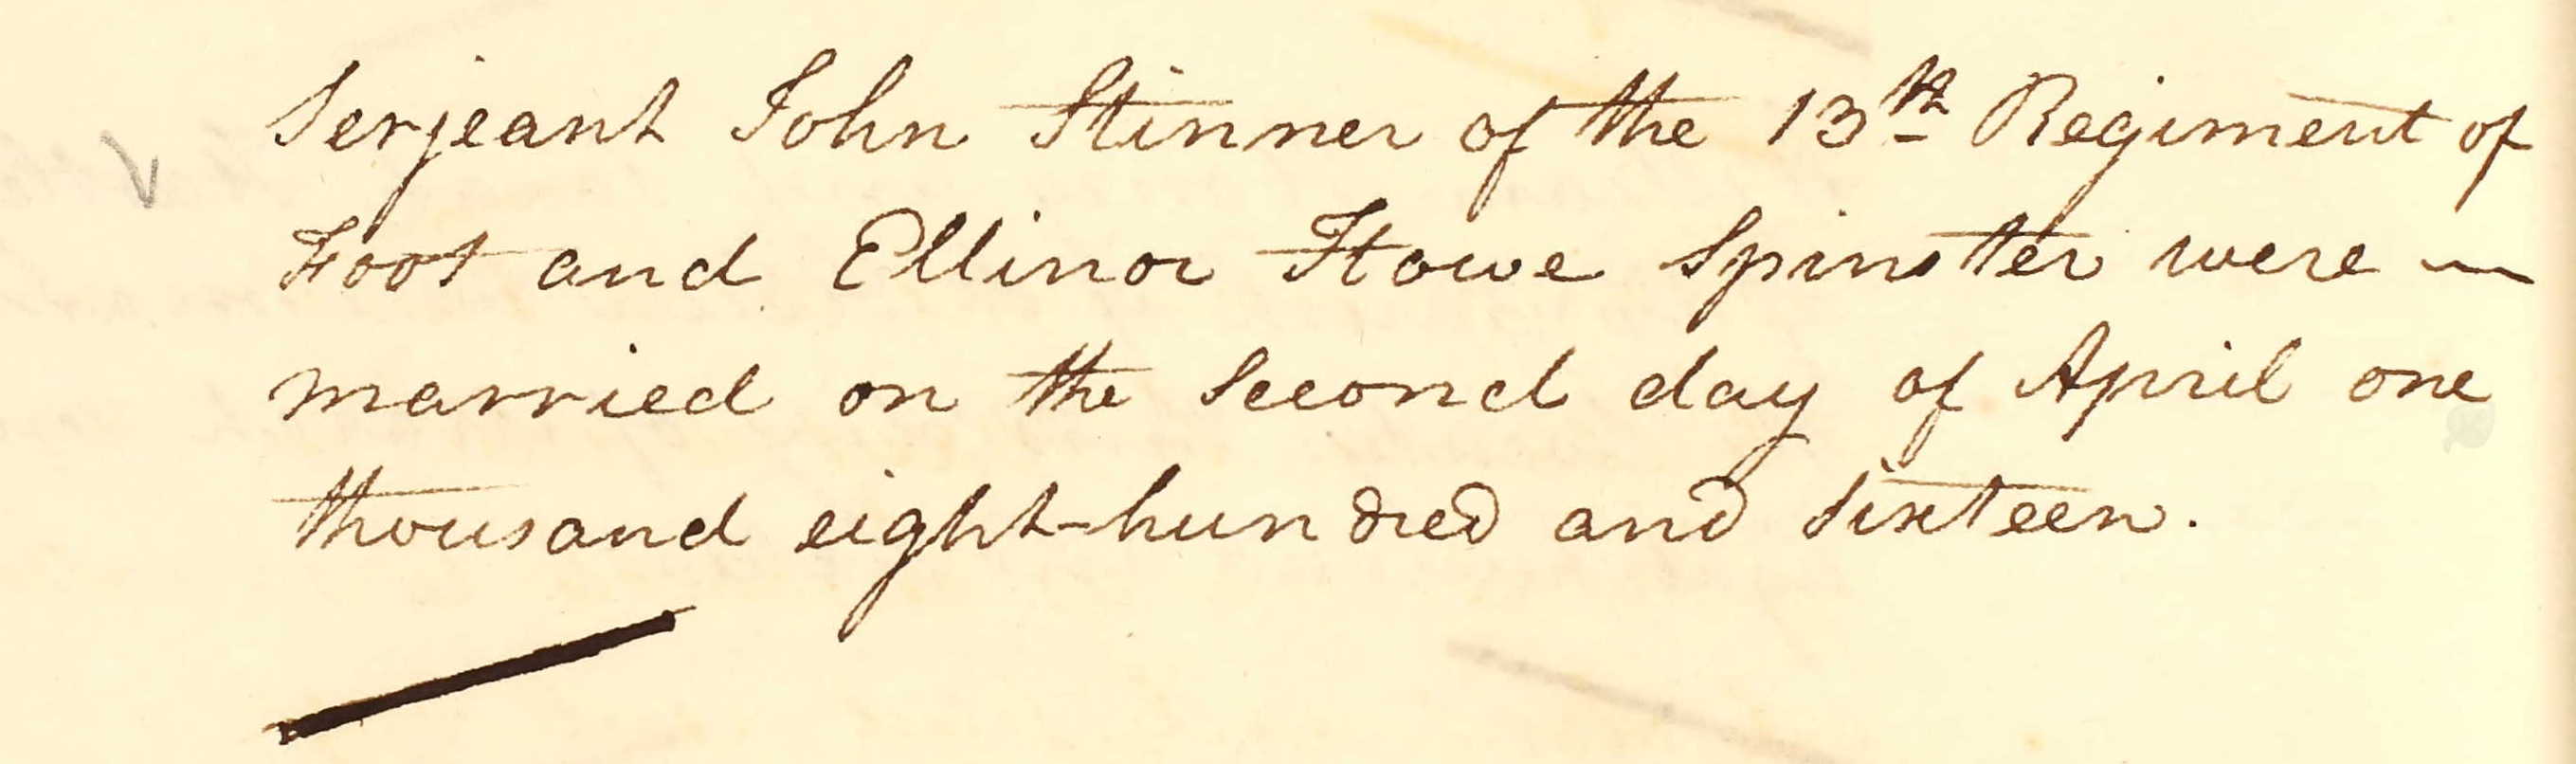 Serjeant John Stinner of the 13th Regiment of
Foot and Ellinor Howe Spinster were —
married on the Second day of April one
thousand eight-hundred and Sixteen.